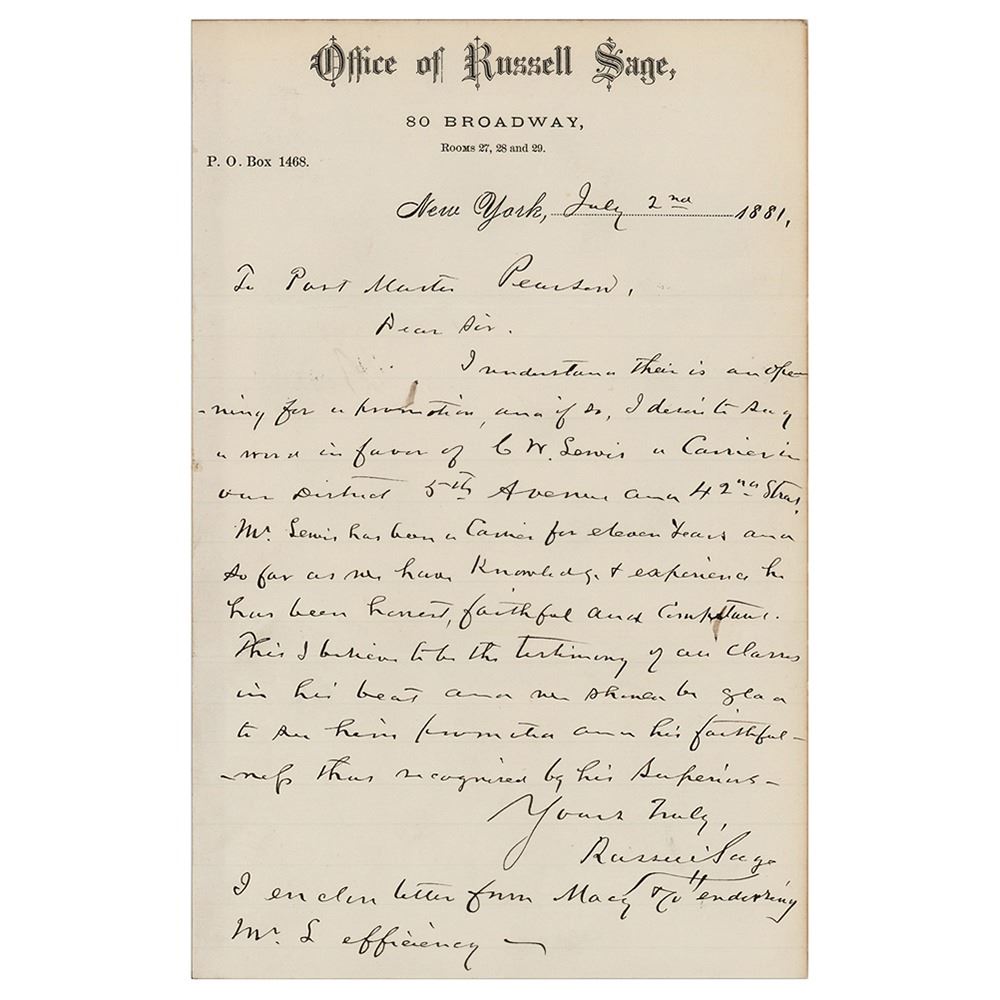 Office of Russell Sage,
80 BROADWAY,
ROOMS 27, 28 and 29.
P. O. Box 1468.
New York, July 2nd 1881,
To Post Master Pearson,
Dear Sir.
I understand their is an ope-
-ning for a promotion, and if so, I desire to say
a word in favor of C W. Lewis a Carrier in
our District 5th Avenue and 42nd Street,
Mr. Lewis has been a Carrier for eleven Years and
so far as we have Knowledge & experience he
has been honest, faithful and Competant.
This I believe to be the testimony of all Classes
in his beat and we should be glad
to see him promoted and his faithful-
-ness thus recognised by his Superiors -
Yours Truly,
Russell Sage
I enclose letter from Macy & Co endorsing
Mr. L efficiency —